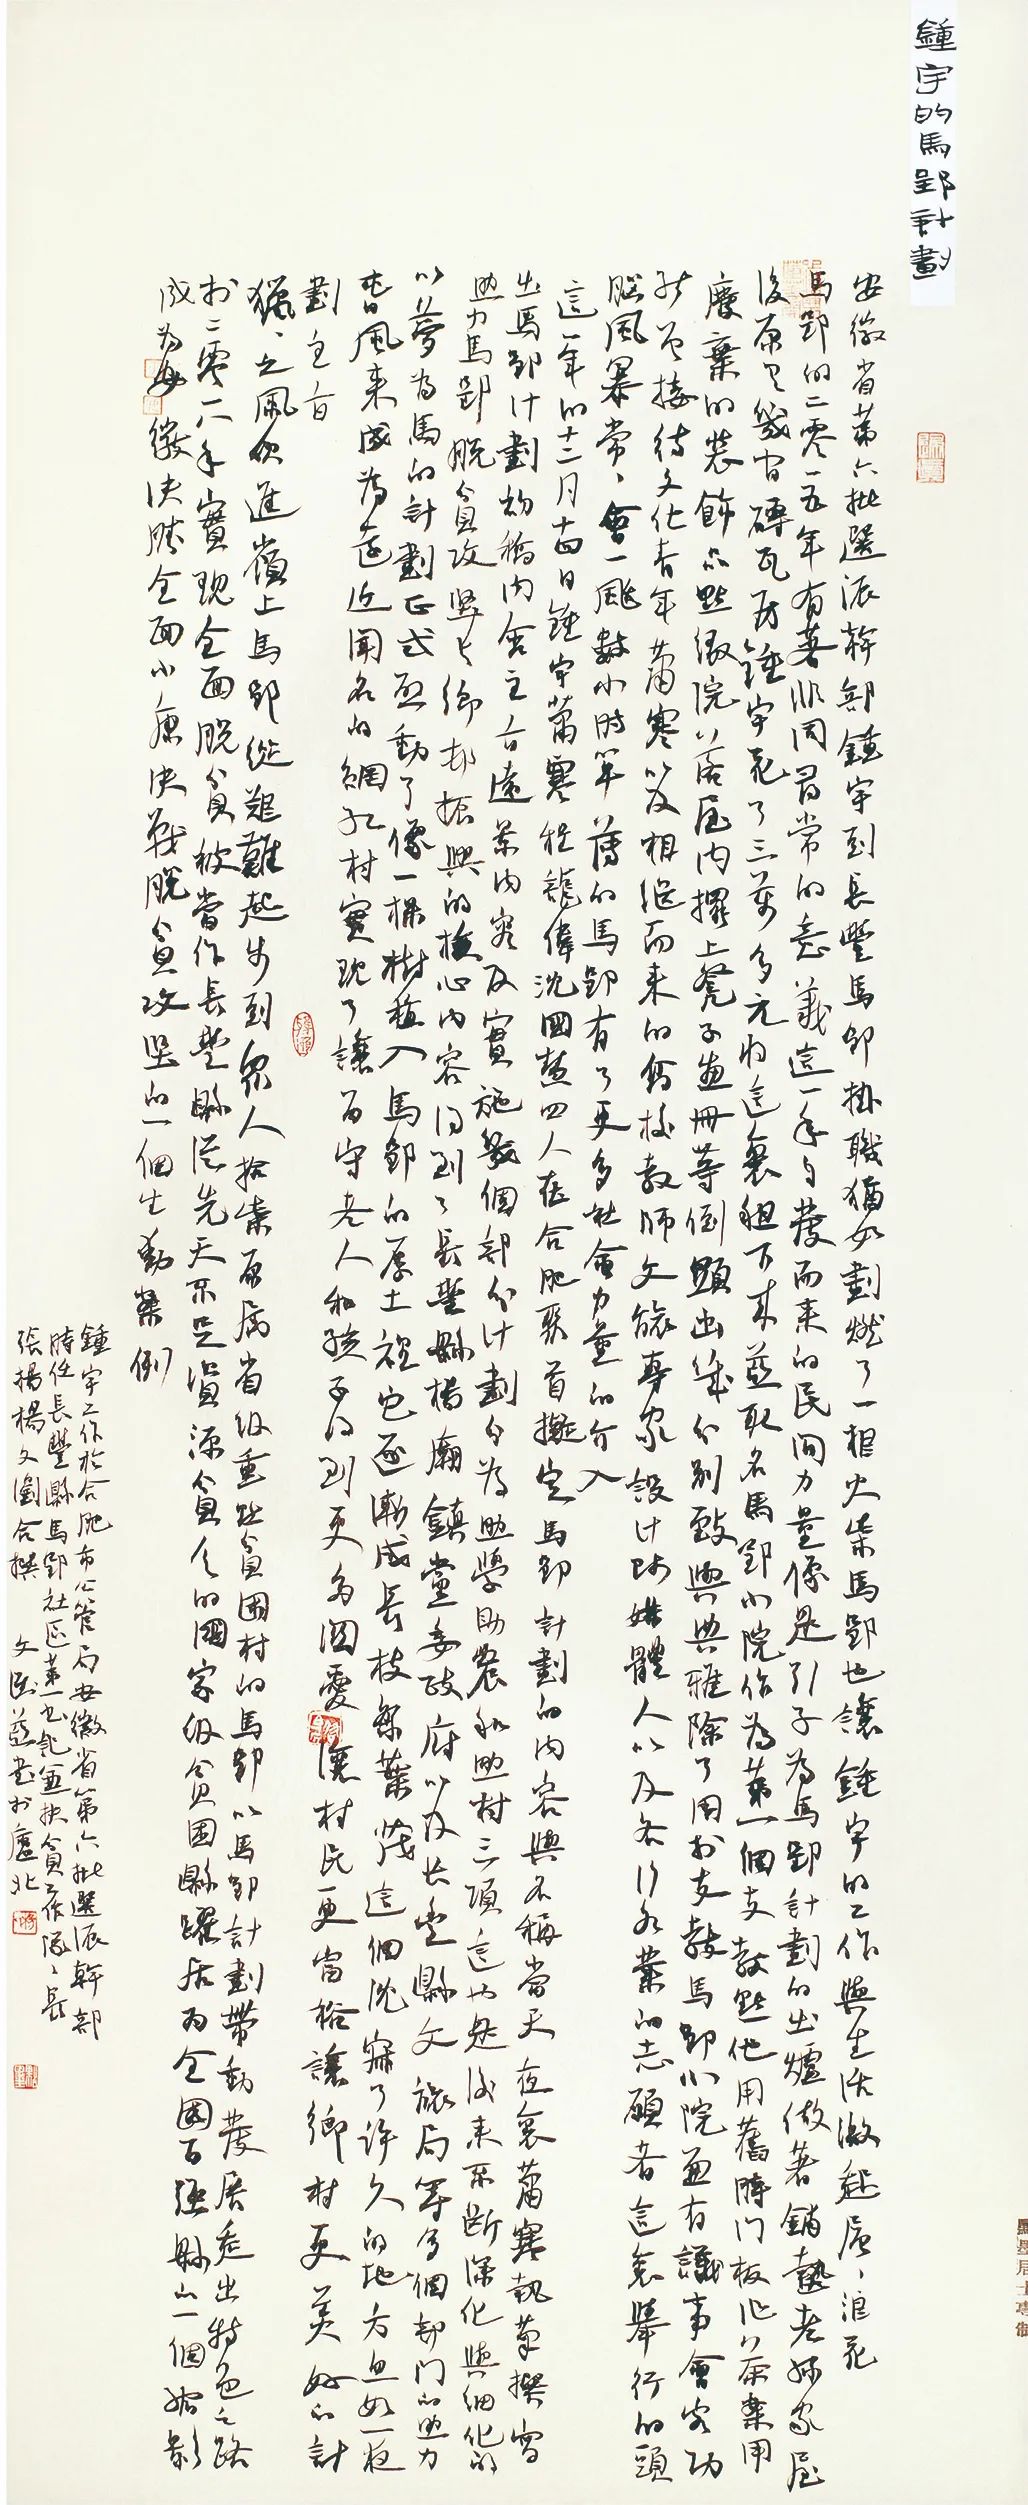 鍾宇的馬郢計劃
安徽省第六批選派幹部鍾宇到長豐馬郢掛職猶如劃燃了一根火柴馬郢也讓鍾宇的工作與生活激起層、浪花
馬郢的二零一五年有著非同尋常的意義這一年自發而來的民間力量像是引子為馬郢計劃的出爐做著鋪墊老鄉家屋
後原是幾間磚瓦房鍾宇花了三萬多元將這裏租下來並取名馬郢小院作為第一個支教點他用舊時門板作茶桌用
廢棄的裝飾品點綴院落屋內擺上凳子畫冊等倒顯出幾分別致與典雅除了用於支教馬郢小院兼有議事會客功
能曾接待文化青年蕭寒以及相繼而來的高校教師文旅專家設計師媒體人以及各行各業的志願者這裏舉行的頭
腦風暴常、會一颳數小時單薄的馬郢有了更多社會力量的介入
這一年的十二月十四日鍾宇蕭寒程龍偉沈國慧四人在合肥聚首擬定馬郢計劃的內容與名稱當天夜裏蕭寒執筆撰寫
出馬郢計劃初稿內含主旨遠景內容及實施幾個部分計劃分為助學助農和助村三項這也是後來不斷深化與細化的
助力馬郢脫貧攻堅與鄉村振興的核心內容得到了長豐縣楊廟鎮黨委政府以及長豐縣文旅局等多個部門的助力
以夢為馬的計劃正式啟動了像一棵樹植入馬郢的厚土裡它逐漸成長枝繁葉茂這個沉寂了許久的地方忽如一夜
春風來成為遠近聞名的網紅村實現了讓留守老人和孩子得到更多關愛讓村民更富裕讓鄉村更美好的計
劃主旨
獵、之風吹進嶺上馬郢從艱難起步到眾人拾柴原屬省級重點貧困村的馬郢以馬郢計劃帶動發展走出特色之路
於二零一八年實現全面脫貧被當作長豐縣從先天不足資源貧乏的國家級貧困縣躍居為全國百強縣的一個縮影
成為安徽決勝全面小康決戰脫貧攻堅的一個生動案例
鍾宇工作於合肥市公管局安徽省第六批選派幹部
時任長豐縣馬郢社區第一書記兼扶貧工作隊、長
張揚楊文劉合撰 文慶並書於廬北